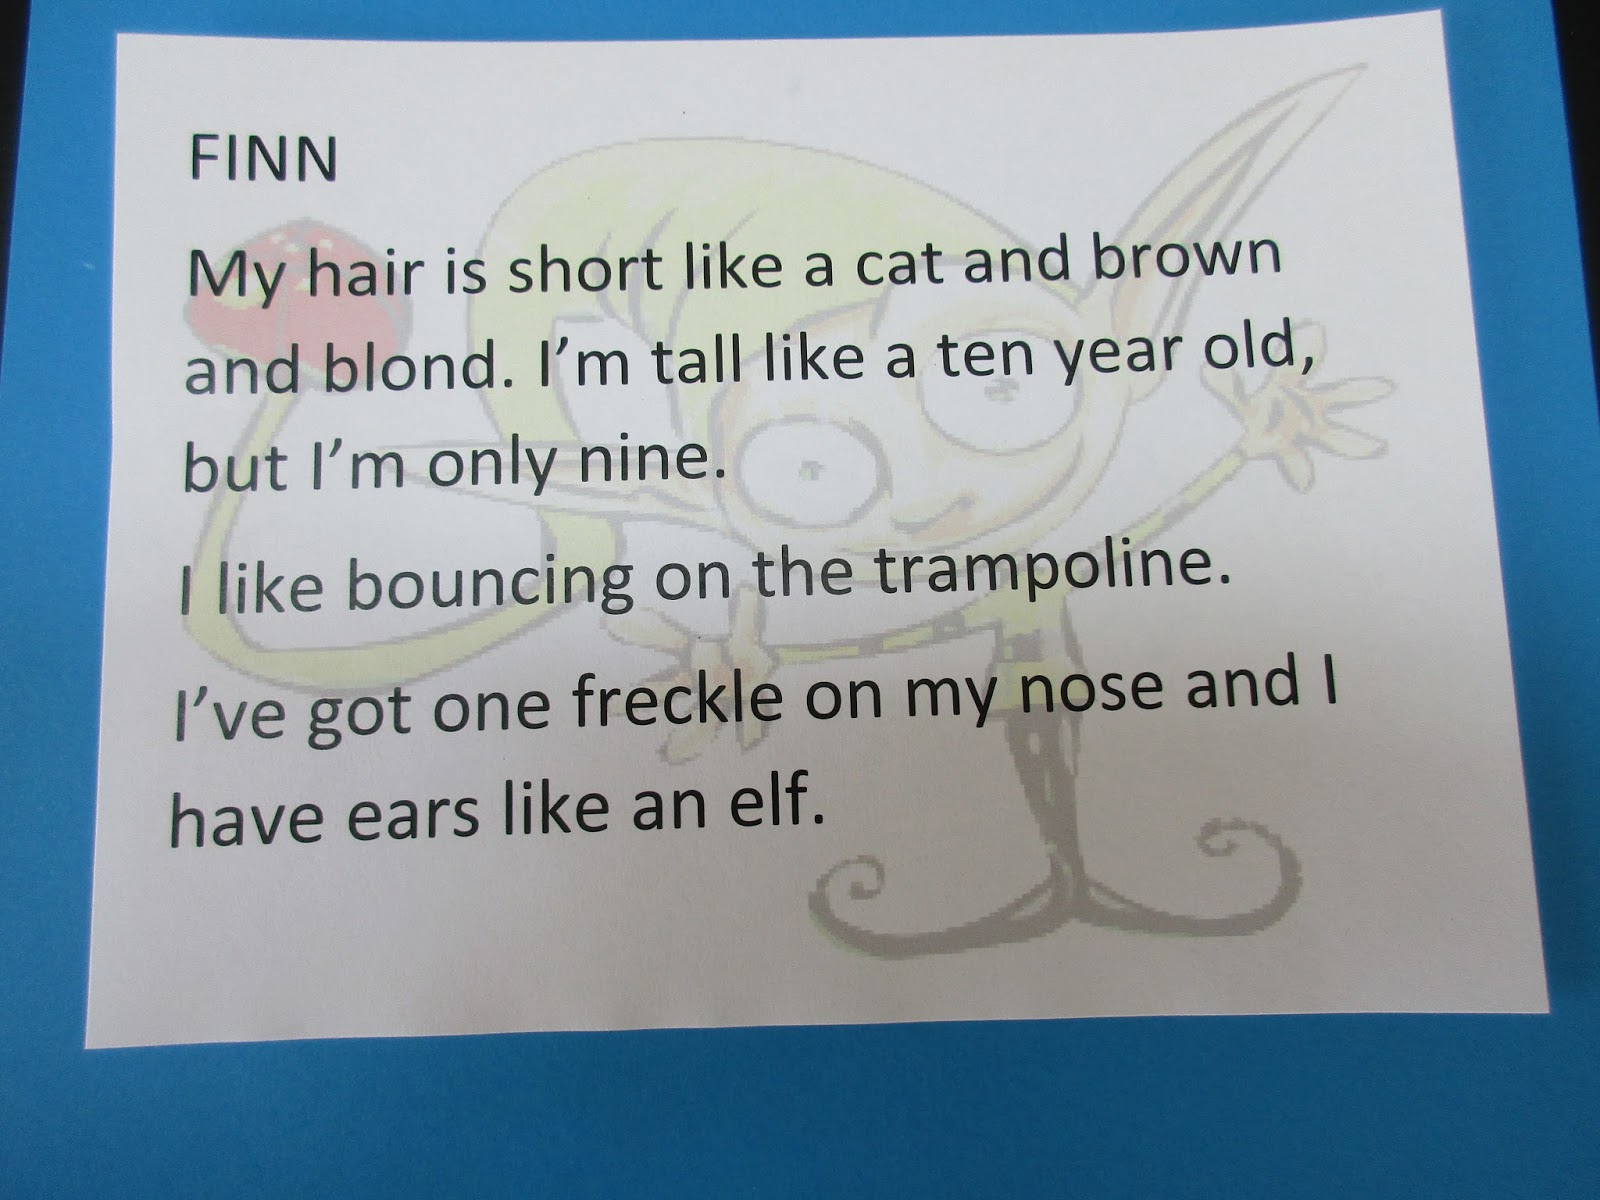 FINN
My hair is short like a cat and brown
and blond. I'm tall like a ten year old,
but I'm only nine.
I like bouncing on the trampoline.
I've got one freckle on my nose and I
have ears like an elf.